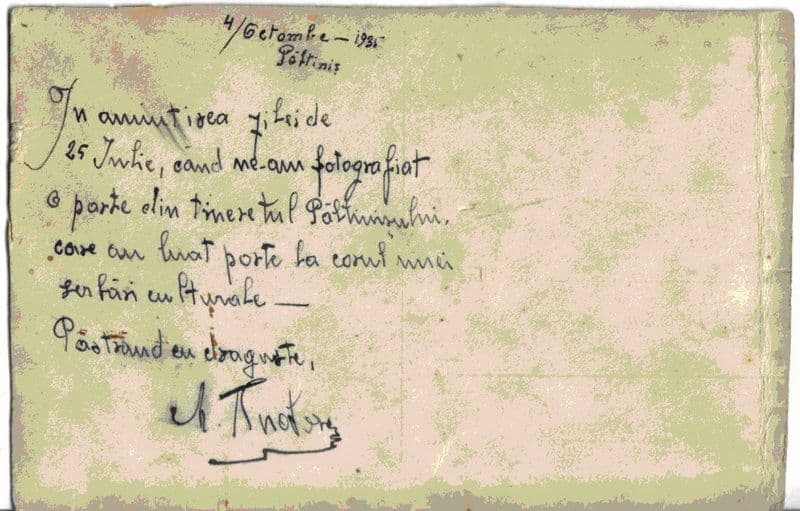 4/Octombrie – 1935
Păltiniș
În amintirea zilei de
25 Iulie, când ne-am fotografiat
o parte din tineretul Păltinișului,
care au luat parte la corul unei
serbări culturale —
Păstrând cu dragoste,